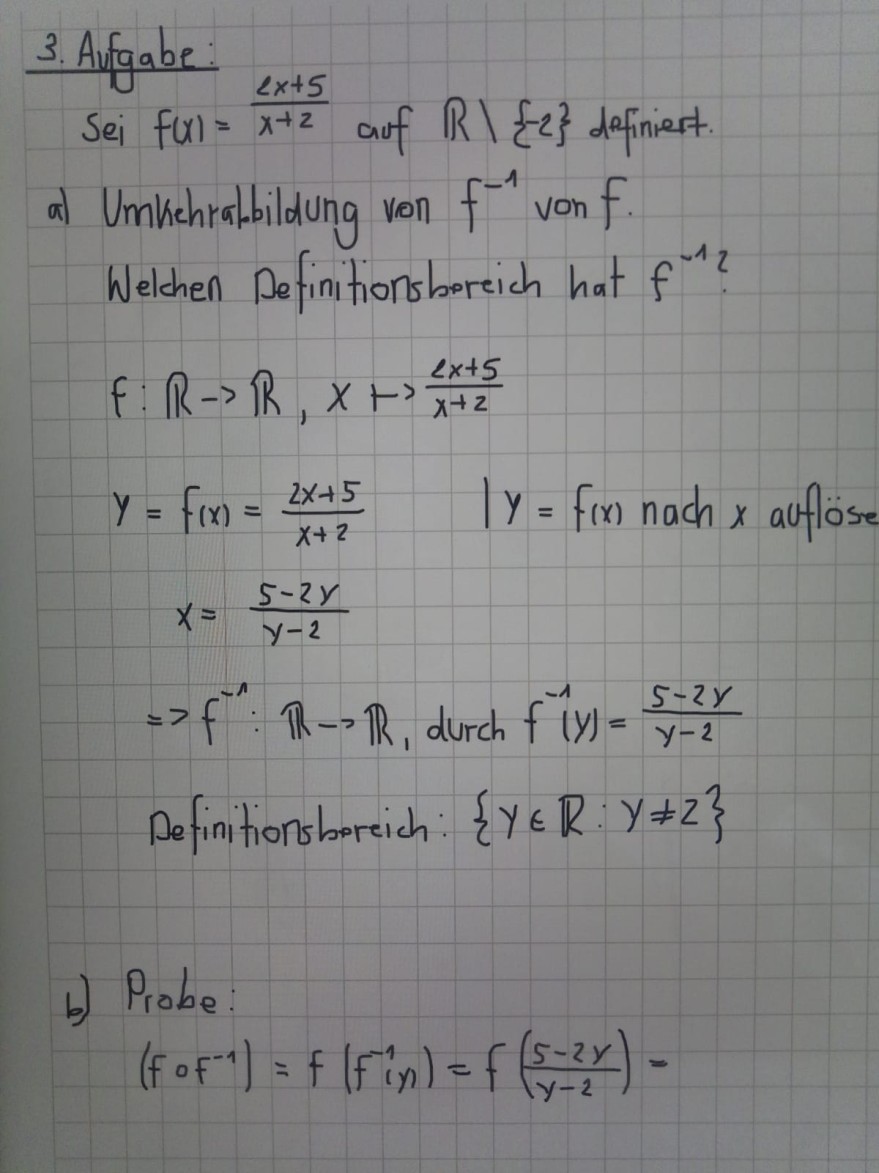 3. Aufgabe:
Sei f(x) = (2x+5)/(x+2) auf ℝ \ {-2} definiert.
a) Umkehrabbildung von f⁻¹ von f.
Welchen Definitionsbereich hat f⁻¹?
f : ℝ -> ℝ, x ↦ (2x+5)/(x+2)
y = f(x) = (2x+5)/(x+2) | y = f(x) nach x auflöse
x = (5-2y)/(y-2)
=> f⁻¹ : ℝ -> ℝ, durch f⁻¹(y) = (5-2y)/(y-2)
Definitionsbereich: {y ∈ ℝ : y ≠ 2}
b) Probe:
(f ∘ f⁻¹) = f (f⁻¹(y)) = f((5-2y)/(y-2)) =